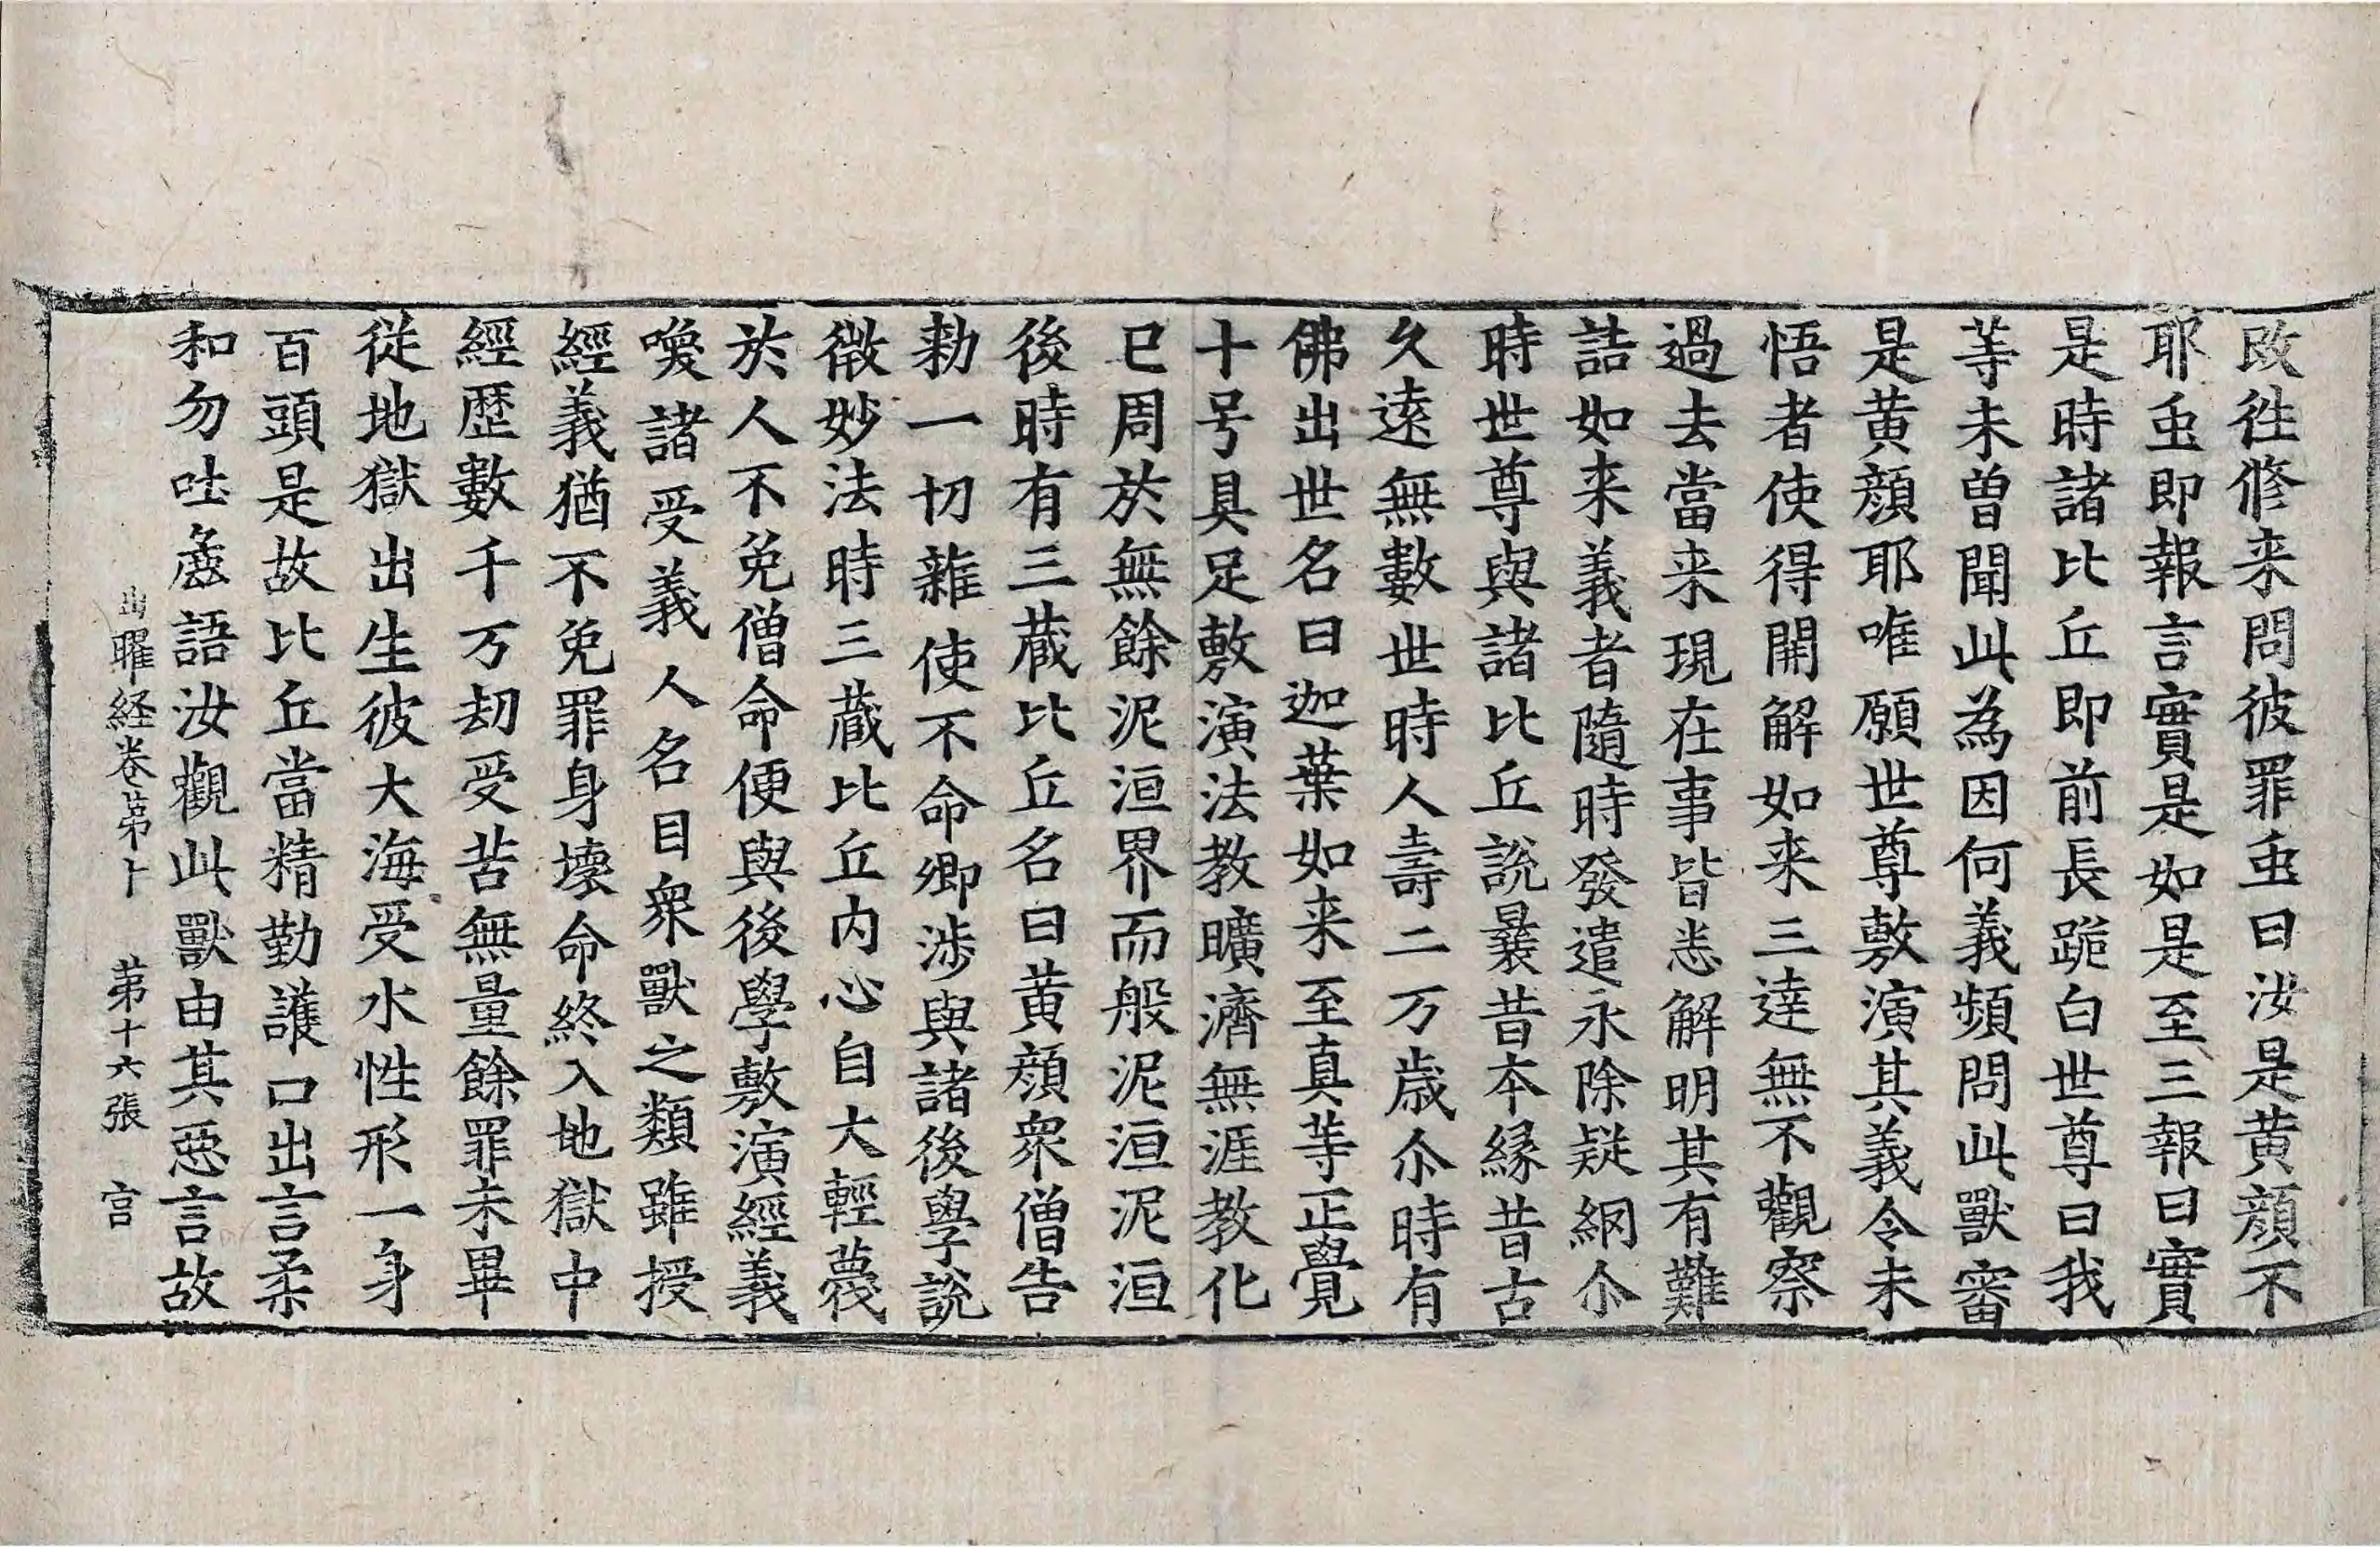 改徃修来問彼罪䖝曰汝是黄顔不
耶䖝即報言實是如是至三報曰實
是時諸比丘即前長跪白世尊曰我
等未曽聞此為因何義頻問此獸審
是黄顔耶唯願世尊敷演其義令未
悟者使得開解如来三達無不觀察
過去當来現在事皆悉解明其有難
詰如来義者隨時發遣永除疑網尒
時世尊與諸比丘說曩昔本縁昔古
久遠無數世時人壽二万歳尒時有
佛出世名曰迦葉如来至真等正覺
十号具足敷演法教曠濟無涯教化
已周於無餘泥洹界而般泥洹泥洹
後時有三蔵比丘名曰黄顔衆僧告
勑一切雜使不命卿涉與諸後學說
微妙法時三蔵比丘内心自大輕蔑
於人不免僧命便與後學敷演經義
喚諸受義人名目衆獸之類雖授
經義猶不免罪身壊命終入地獄中
經歴數千万刼受苦無量餘罪未畢
従地獄出生彼大海受水性形一身
百頭是故比丘當精勤護口出言柔
和勿吐麁語汝觀此獸由其惡言故
出曜経卷第卜 第十六張 宫